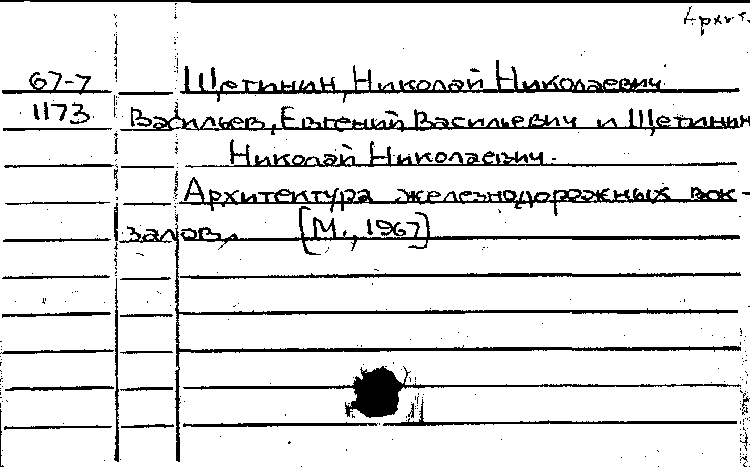 Архит.
67-7 Щетинин, Николай Николаевич
1173 Васильев, Евгений Васильевич и Щетинин
Николай Николаевич.
Архитектура железнодорожных вок-
залов. [М., 1967]